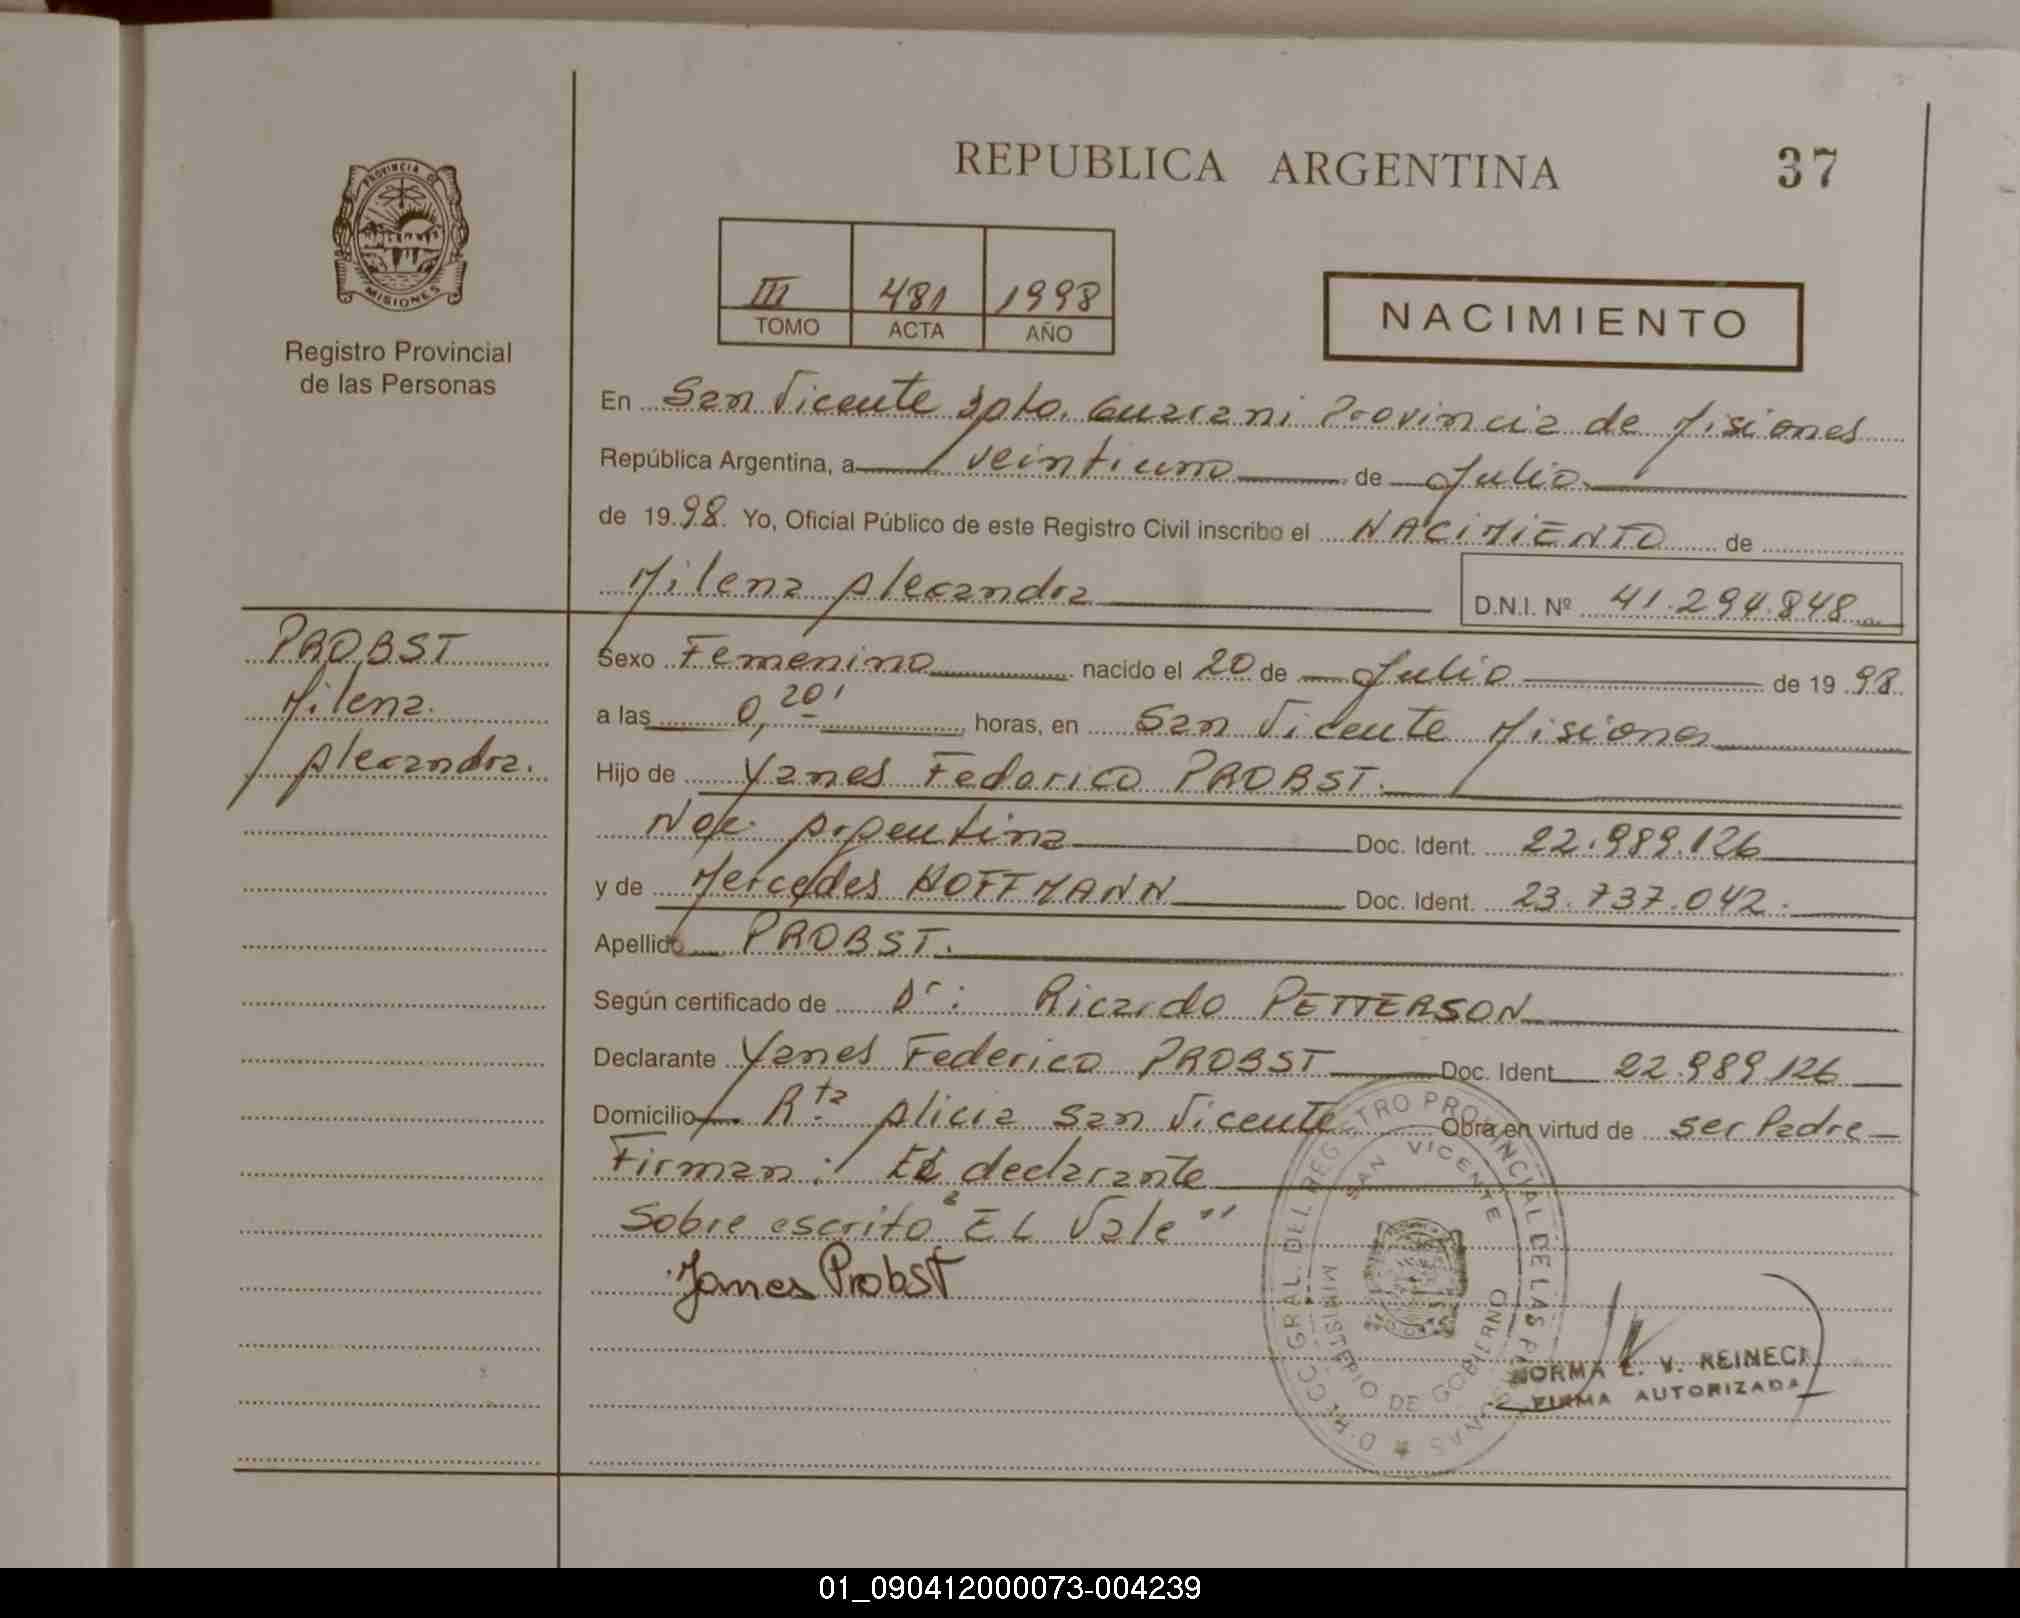 REPUBLICA ARGENTINA
37
PROVINCIA DE MISIONES
Registro Provincial
de las Personas
III 481 1998
TOMO ACTA AÑO
NACIMIENTO
En San Vicente Dpto. Guarani Provincia de Misiones
República Argentina, a veintiuno de Julio
de 19 98. Yo, Oficial Público de este Registro Civil inscribo el NACIMIENTO de
Milena Alexandra D.N.I. Nº 41.294.848
PROBST
Milena
Alexandra.
Sexo Femenino nacido el 20 de Julio de 19 98.
a las 0,20' horas, en San Vicente Misiones
Hijo de Yanes Federico PROBST.
Nac. Argentina Doc. Ident. 22.989.126
y de Mercedes HOFFMANN Doc. Ident. 23.737.042.
Apellido PROBST.
Según certificado de Dr: Ricardo PETTERSON
Declarante Yanes Federico PROBST Doc. Ident. 22.989.126
Domicilio Rta Alicia San Vicente Obra en virtud de ser Padre
Firman: EL declarante
Sobre escrito "EL Vale"
Yanes Probst
D.R.CC.GRAL. DEL REGISTRO PROVINCIAL DE LAS PERSONAS
SAN VICENTE
MINISTERIO DE GOBIERNO
NORMA L. V. REINECK
FIRMA AUTORIZADA
01_090412000073-004239